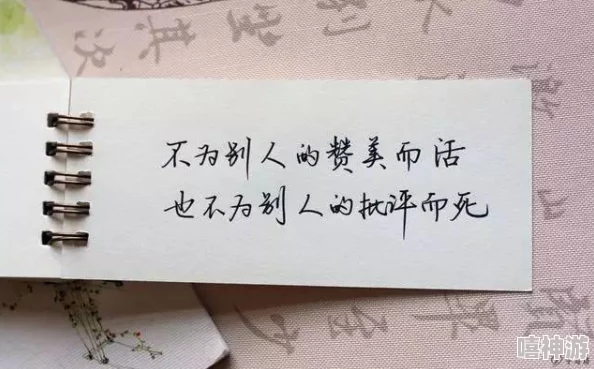 不为别人的赞美而活
也不为别人的批评而死
嘻神游